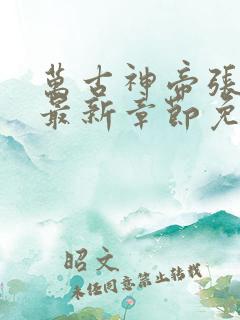 萬古神帝張
最新章節免
昭文
未经同意禁止转载